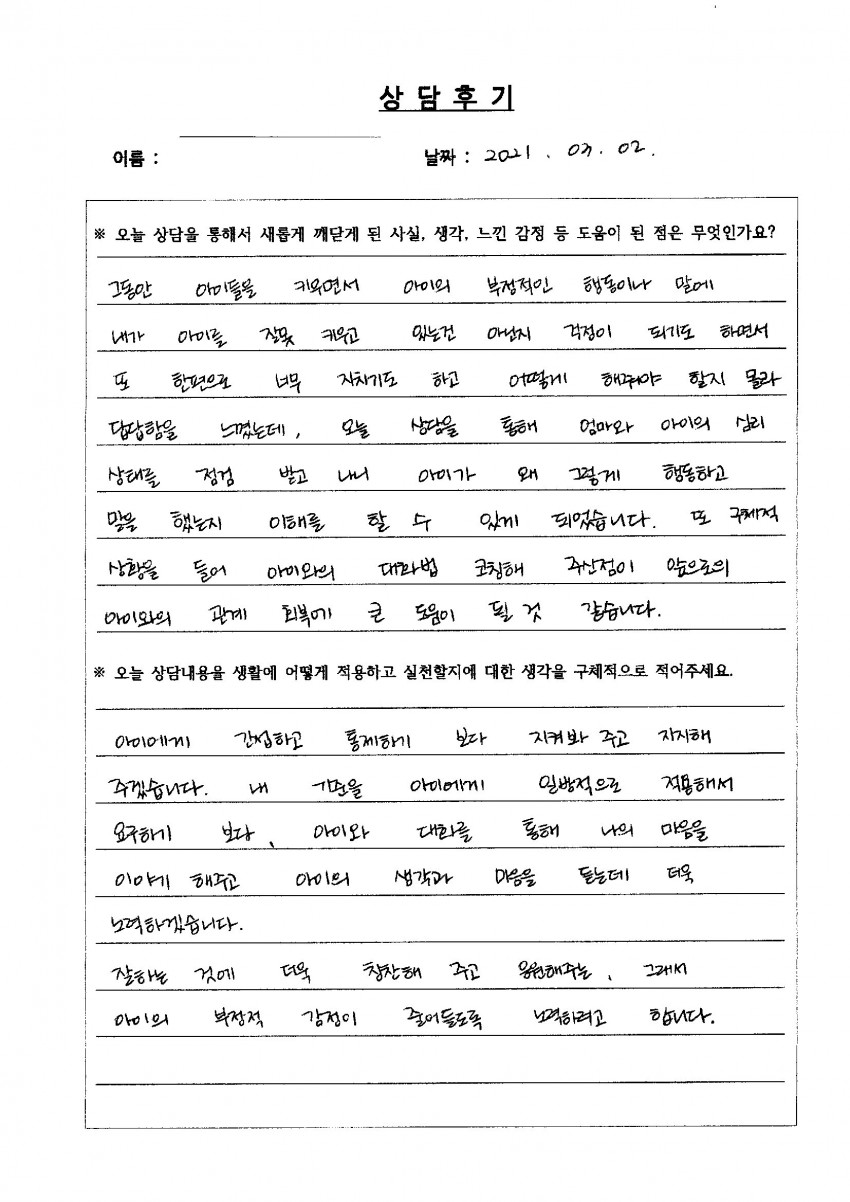 상 담 후 기
이름 :
날짜 : 2021 . 03 . 02 .
※ 오늘 상담을 통해서 새롭게 깨닫게 된 사실, 생각, 느낀 감정 등 도움이 된 점은 무엇인가요?
그동안 아이들을 키우면서 아이의 부정적인 행동이나 말에
내가 아이를 잘못 키우고 있는건 아닌지 걱정이 되기도 하면서
또 한편으로 너무 지치기도 하고 어떻게 해줘야 할지 몰라
답답함을 느꼈는데, 오늘 상담을 통해 엄마와 아이의 심리
상태를 점검 받고 나니 아이가 왜 그렇게 행동하고
말을 했는지 이해를 할 수 있게 되었습니다. 또 구체적
상황을 들어 아이와의 대화법 코칭해 주신점이 앞으로의
아이와의 관계 회복에 큰 도움이 될 것 같습니다.
※ 오늘 상담내용을 생활에 어떻게 적용하고 실천할지에 대한 생각을 구체적으로 적어주세요.
아이에게 간섭하고 통제하기 보다 지켜봐 주고 지지해
주겠습니다. 내 기준을 아이에게 일방적으로 적용해서
요구하기 보다, 아이와 대화를 통해 나의 마음을
이야기 해주고 아이의 생각과 마음을 듣는데 더욱
노력하겠습니다.
잘하는 것에 더욱 칭찬해 주고 응원해주는, 그래서
아이의 부정적 감정이 줄어들도록 노력하려고 합니다.